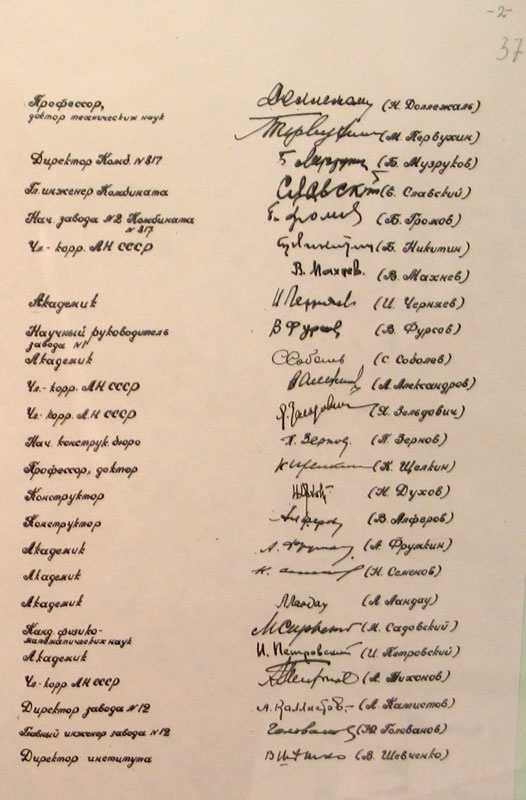 -2-
37
Профессор, доктор технических наук (Н. Доллежаль)
(М. Первухин)
Директор Комб. №817 (Б. Музруков)
Гл. инженер Комбината Славский (Е. Славский)
Нач. завода №2 Комбината №817 Б. Громов (Б. Громов)
Чл.-корр. АН СССР (Б. Никитин)
В. Махнев. (В. Махнев)
Академик И Черняев (И. Черняев)
Научный руководитель завода №1 В Фурсов (В. Фурсов)
Академик С Соболь (С. Соболев)
Чл.-корр. АН СССР (А. Александров)
Чл.-корр. АН СССР Я. Зельдович (Я. Зельдович)
Нач. конструк. бюро П. Зернов (П. Зернов)
Профессор, доктор К Щелкин (К. Щелкин)
Конструктор (Н. Духов)
Конструктор Алферов (В. Алферов)
Академик А. Фрумкин (А. Фрумкин)
Академик (Н. Семенов)
Академик Ландау (Л. Ландау)
Канд. физико-математических наук М Садовский (М. Садовский)
Академик И. Петровский (И. Петровский)
Чл.-корр АН СССР (А. Тихонов)
Директор завода №12 А. Каллистов. (А. Каллистов)
Главный инженер завода №12 Голованов (Ю. Голованов)
Директор института В Шевченко (В. Шевченко)